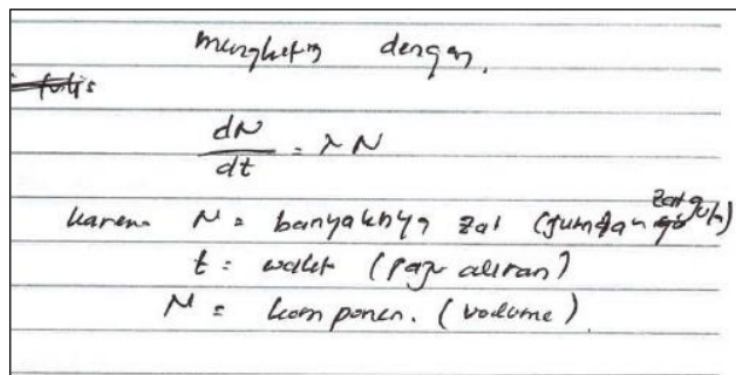 dengan,
dN/dt = λN
karena N = banyaknya zat (jumlah zat gula)
t = waktu (laju aliran)
N = komponen. (volume)